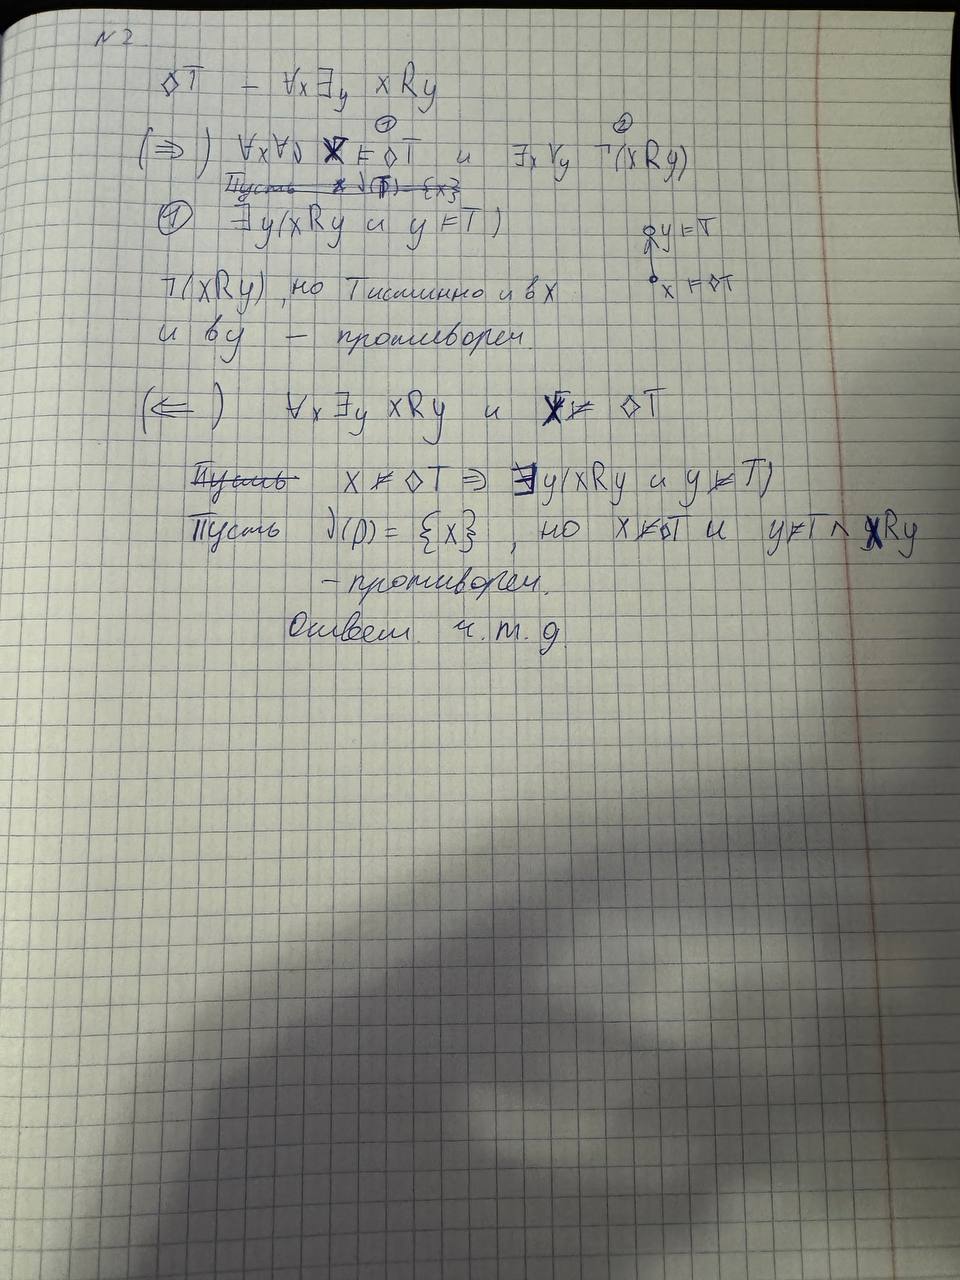 N 2.
◇T – ∀x∃y xRy
(⇒) ∀x∀ϑ x ⊨ ◇T и ∃x∀y ¬(xRy)
① ②
Пусть x ϑ(p) = {x}
① ∃y(xRy и y ⊨ T)
y ⊨ T
¬(xRy), но T истинно и в x
x ⊨ ◇T
и в y – противореч.
(⇐) ∀x∃y xRy и x ⊭ ◇T
Пусть x ⊭ ◇T ⇒ ∃y(xRy и y ⊭ T)
Пусть ϑ(p) = {x}, но x ⊭ ◇T и y ⊭ T ∧ xRy
– противореч.
Ответ. ч.т.д.